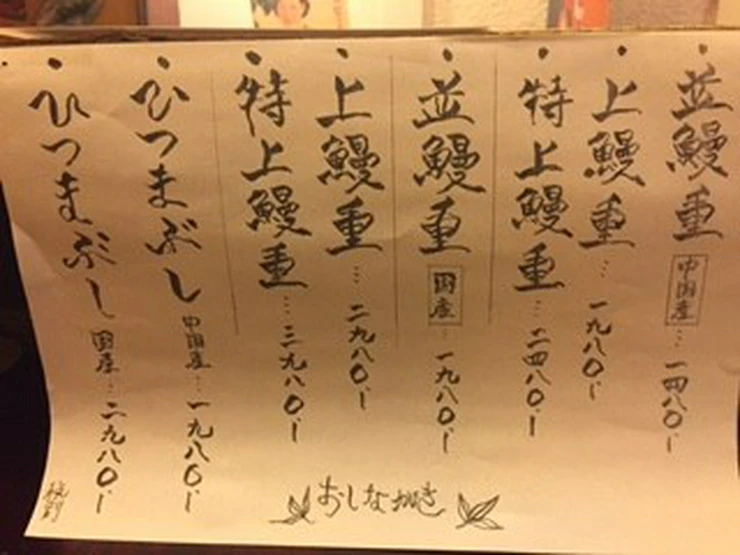 ・並鰻重 中国産…一四八〇ー
・上鰻重…一九八〇ー
・特上鰻重…二四八〇ー
・並鰻重 国産…一九八〇ー
・上鰻重…二九八〇ー
・特上鰻重…三九八〇ー
・ひつまぶし 中国産…一九八〇ー
・ひつまぶし 国産…二九八〇ー
税別
おしながき